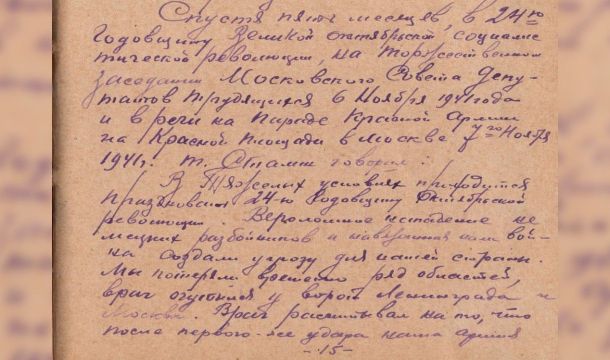 Спустя пять месяцев, в 24ю
Годовщину Великой октябрьской социалис
тической революции, на торжественном
заседании Московского Совета депу-
татов трудящихся 6 ноября 1941 года
и в речи на Параде Красной Армии
на Красной площади в Москве 7го Ноября
1941г. т. Сталин говорил:
В тяжелых условиях приходится
праздновать 24-ю годовщину Октябрьской
революции. Вероломное нападение не
мецких разбойников и навязанная нам вой-
на создали угрозу для нашей страны.
Мы потеряли временно ряд областей,
враг очутился у ворот Ленинграда и
Москвы. Враг рассчитывал на то, что
после первого-же удара наша армия
-15-